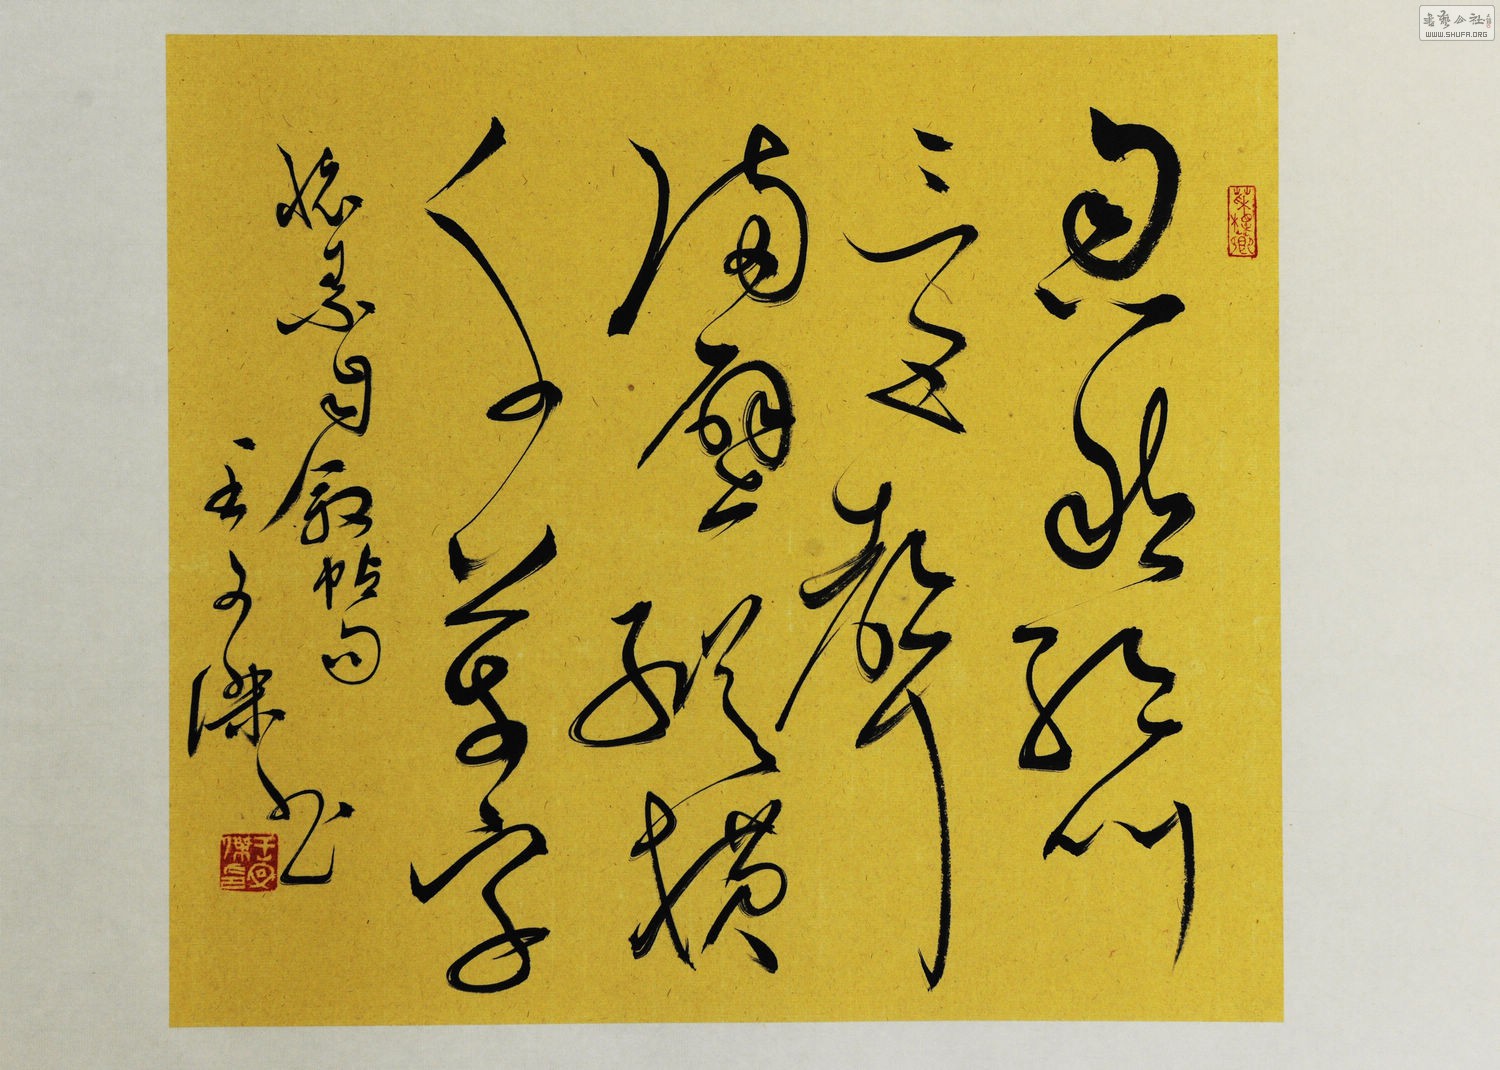 忽然絕叫
三五聲
滿壁縱橫
千萬字
懷素自叙帖句
王文傑書
書藝公社
WWW.SHUFA.ORG